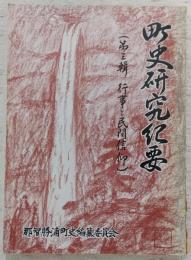 町史研究紀要
（第三輯 行事・民間信仰）
那智勝浦町史編纂委員会